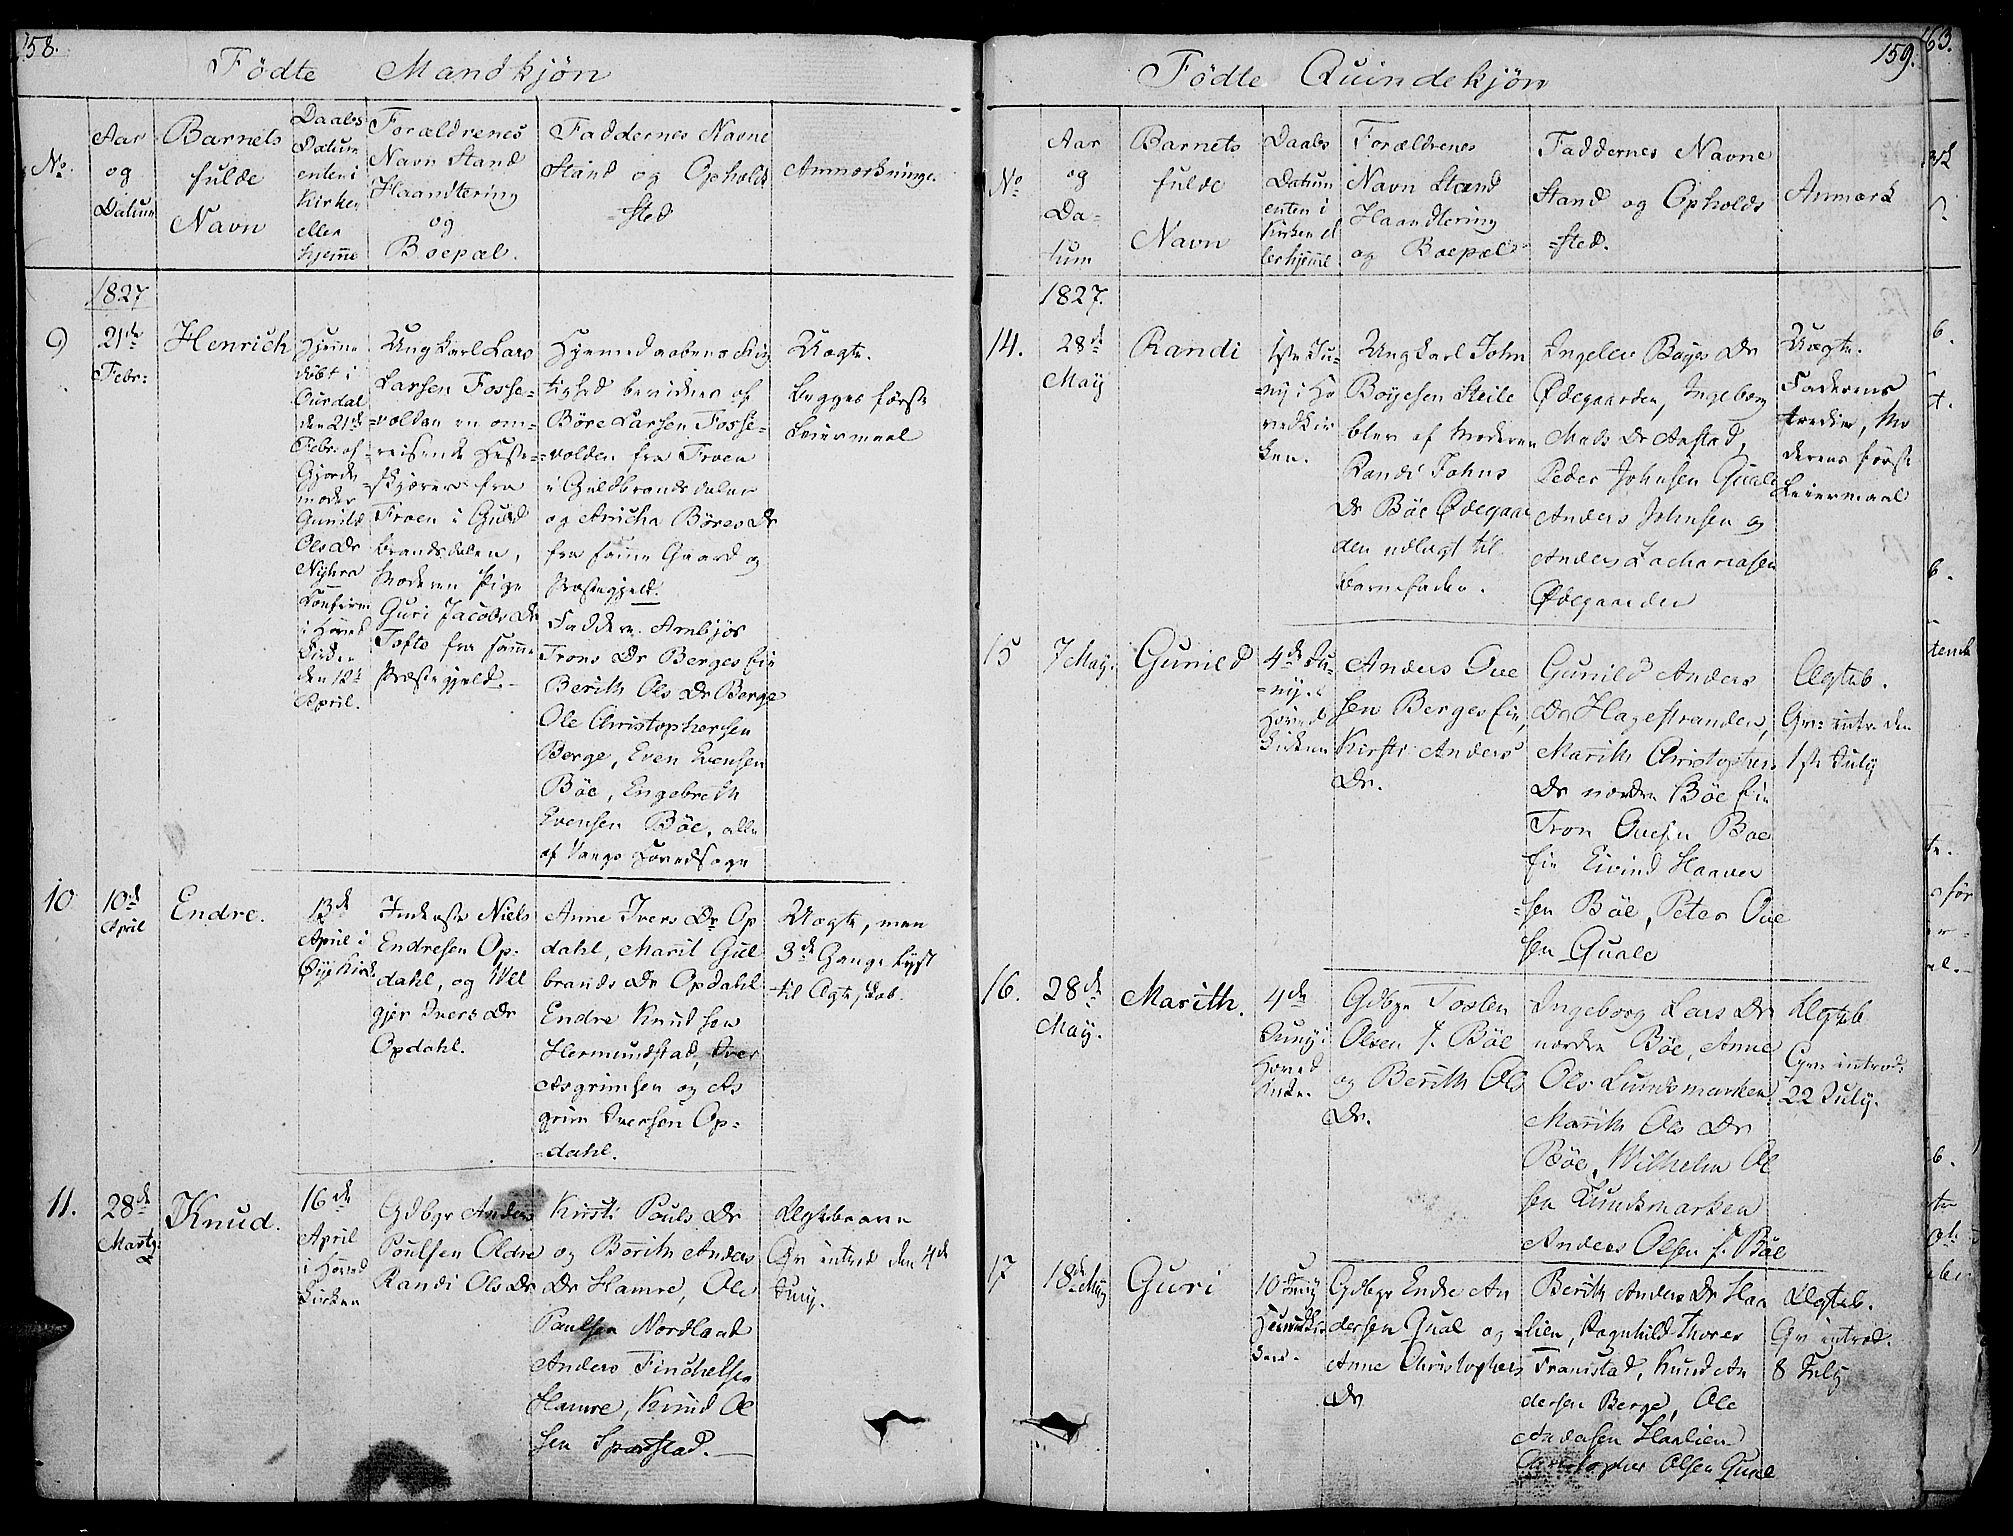 158.
Födte Mandkjøn
No.
Aar
og
Datum
Barnets
fulde
Navn
Daabs
Datum
enten i
Kirken
eller
hjemme
Forældrenes
Navn Stand
Haandtering
og
Boepæl.
Faddernes Navne
Stand og Opholds
=sted
Anmærkninge.
1827
9
21de
Febr:
Henrich
Hjemme
døbt i
Ourdal
den 21de
Febr: af
Gjorde
moder
Gunild
Ols Dr
Nyhra
Confirm
i Hoved
Kirken
den 12te
April.
Ungkarl Lars
Larsen Fosse-
=volden en om-
=reisende Heste-
=skjærer fra
Froen i Guld
brandsdalen,
Moderen Pige
Guri Jacobs Dr
Tofte fra samme
Præstegjeld.
Hjemmedaabens Rig
tighed bevidnes af
Böre Larsen Fosse-
=volden fra Froen
i Guldbrandsdalen
og Aricha Böres Dr
fra samme Gaard og
Præstegjeld.
Faddere. Ambjør
Trons Dr Berges Eie
Berith Ols Dr Berge
Ole Christophersen
Berge, Even Evensen
Böe, Engebreth
Evensen Böe, alle
af Vangs Hovedsogn
Uægte.
Begges første
Leiermaal
10
10de
April
Endre.
13de
April i
Øye Kirke
Inderste Niels
Endresen Op-
dahl, og Vel
gjer Ivers Dr
Opdahl.
Anne Ivers Dr Op
dahl, Marit Gul
brands Dr Opdahl
Endre Knudsen
Hermundstad, Iver
Asgrimsen og As
grim Iversen Op-
=dahl.
Uægte, men
3de Gange lyst
til Ægteskab.
11.
28de
Marty
Knud.
16de
April
i Hoved
Kirken
Gdbgr Anders
Poulsen Oldre
Randi Ols Dr
Kirsti Pouls Dr
og Borith Anders
Dr Hamre, Ole
Paulsen Nordland
Anders Finchelsen
Hamre, Knud Ol
sen Sparstad.
Ægtebarn
Qv introd den 4de
Juny.
159.
Födte Quindekjøn
No
Aar
og
Da-
tum
Barnets
fulde
Navn
Daabs
Datum
enten i
Kirken el
ler hjemme
Forældrenes
Navn Stand
Haandtering
og Boepæl
Faddernes Navne
Stand og Opholds
=sted.
Anmærk
1827.
14.
28de
May
Randi
1ste Ju-
ny i Ho
vedkir
ken.
Ungkarl John
Boyesen Steile
blev af Moderen
Randi Johns
Dr Böe Ødegaar
den udlagt til
Barnefader.
Ingelev Boyes Dr
Ødegaarden, Ingeborg
Mads Dr Aastad,
Peder Johnsen Quale
Anders Johnsen og
Anders Zachariasen
Ødegaarden
Uægte.
Faderens
tredie, Mo
derens første
Leiermaal
15
7 May.
Gunild
4de Ju-
=ny i
Hoved
Kirken
Anders Ove
sen Berges Eie,
Kirsti Anders
Dr.
Gunild Anders
Dr Hagestranden,
Marith Christophers
Dr nordre Böe Eie
Tron Ovesen Boe
Eie Eivind Haaver
=sen Böe, Peter Ove
sen Quale
Ægteb.
Qv: introd den
1ste July
16.
28de
May.
Marith.
4de
Juny i
Hoved
Kirke.
Gdbgr Tosten
Olsen S. Böe
og Berith Ols
Dr.
Ingeborg Lars Dr
nordre Böe, Anne
Ols Lundsmarken
Marith Ols Dr
Böe, Wilhelm Ol
sen Lundsmarken
Anders Olsen S. Böe
Ægteb
Qv: introd:
22 July.
17
18de May
Guri
10 Juny
Hovedkir
ken.
Gdbgr Endre An
dersen Qual og
Anne Christophers
Dr
Berith Anders Dr Haa
=lien, Ragnhild Thores
Framstad, Knud An
dersen Berge, Ole
Andersen Haalien
Christopher Olsen Qual
Ægteb.
Qv introd.
8 July
163.